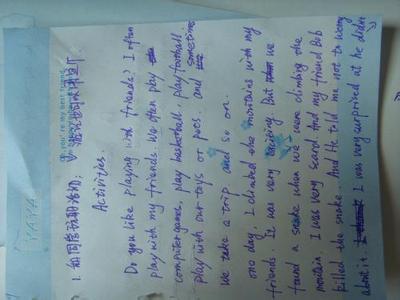 1. 和同学
Activities.
Do you like playing with friends? I often
play with my friends. We often play
computer games, play basketball, play football
play with our toys or pets, and sometimes
We take a trip and so on.
one day, I climbed the montains with my
friends. It was very exciting. But we
found a snake when we were climbing the
montain. I was very scared and my friend Bob
killed the snake. And He told me not to worry
about it. I was very surprised at he didn't
you're my best